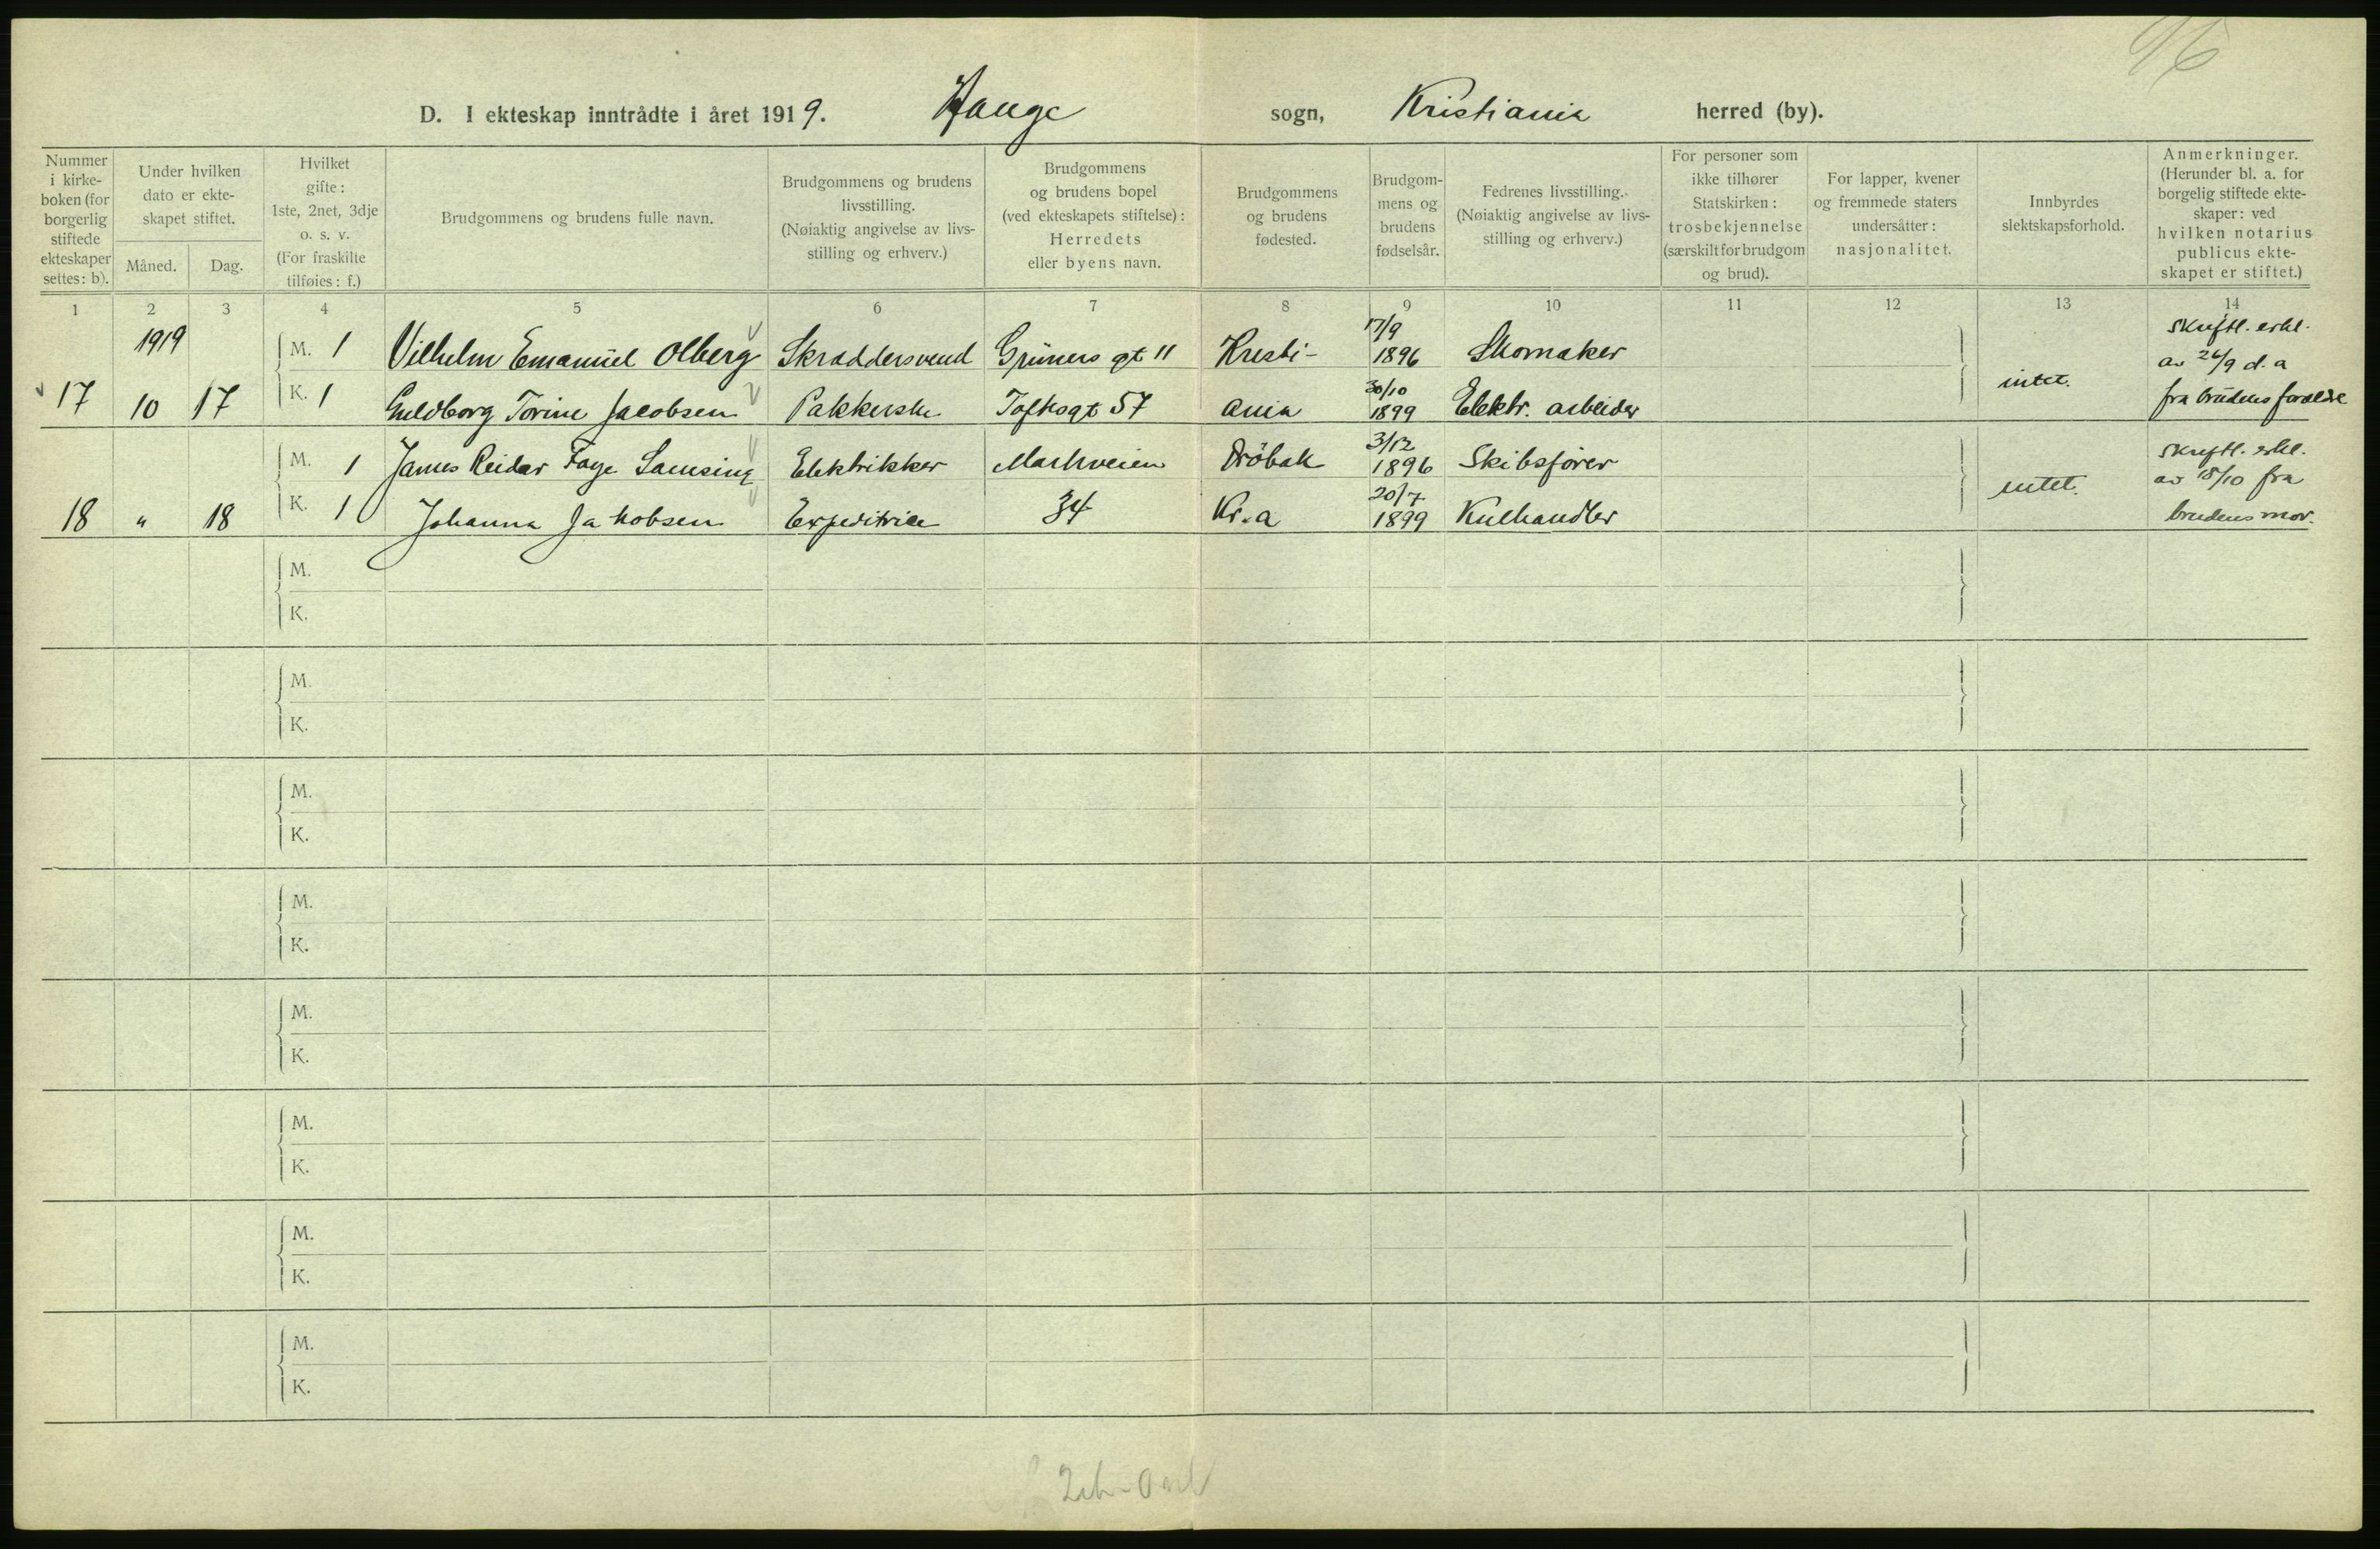 D. I ekteskap inntrådte i året 1919. Hauge sogn, Kristiania herred (by).
Nummer i kirke-boken (for borgerlig stiftede ekteskaper settes: b).
Under hvilken dato er ekte-skapet stiftet.
Måned. Dag.
Hvilket gifte: 1ste, 2net, 3dje o. s. v. (For fraskilte tilføies: f.)
Brudgommens og brudens fulle navn.
Brudgommens og brudens livsstilling. (Nøiaktig angivelse av livs-stilling og erhverv.)
Brudgommens og brudens bopel (ved ekteskapets stiftelse): Herredets eller byens navn.
Brudgommens og brudens fødested.
Brudgom-mens og brudens fødselsår.
Fedrenes livsstilling. (Nøiaktig angivelse av livs-stilling og erhverv.)
For personer som ikke tilhører Statskirken: trosbekjennelse (særskilt for brudgom og brud).
For lapper, kvener og fremmede staters undersåtter: nasjonalitet.
Innbyrdes slektskapsforhold.
Anmerkninger. (Herunder bl. a. for borgelig stiftede ekte-skaper: ved hvilken notarius publicus ekte-skapet er stiftet.)
1 2 3 4 5 6 7 8 9 10 11 12 13 14
1919 M. 1 Vilhelm Emanuel Olberg Skraddersvend Grüners gt 11 Kristi- 17/9 1896 Skomaker skriftl. erkl. av 24/9 d. a
17 10 17 K. 1 Guldborg Torine Jacobsen Pakkerske Toftesgt 57 ania 30/10 1899 Elektr. arbeider intet. fra brudens foreldre
M. 1 James Reidar Faye Samsing Elektrikker Markveien Dröbak 3/12 1896 Skibsförer skriftl. erkl. av 15/10 fra
18 " 18 K. 1 Johanna Jakobsen Expeditrice 34 Kr.a 20/7 1899 Kulhandler intet. brudens mor.
M.
K.
M.
K.
M.
K.
M.
K.
M.
K.
M.
K.
M.
K.
M.
K.